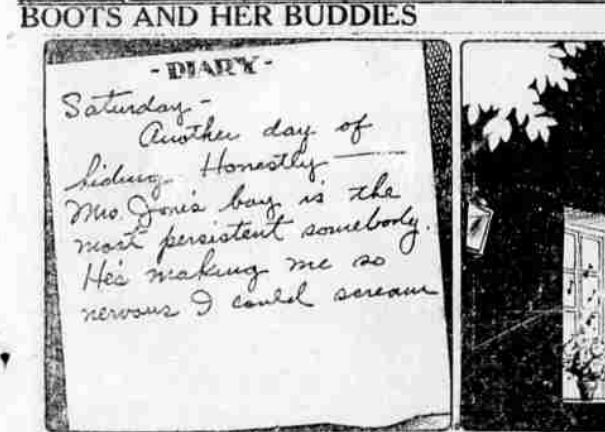 BOOTS AND HER BUDDIES
- DIARY -
Saturday -
Another day of
hiding. Honestly ——
Mrs. Jone's boy is the
most persistent somebody.
He's making me so
nervous I could scream